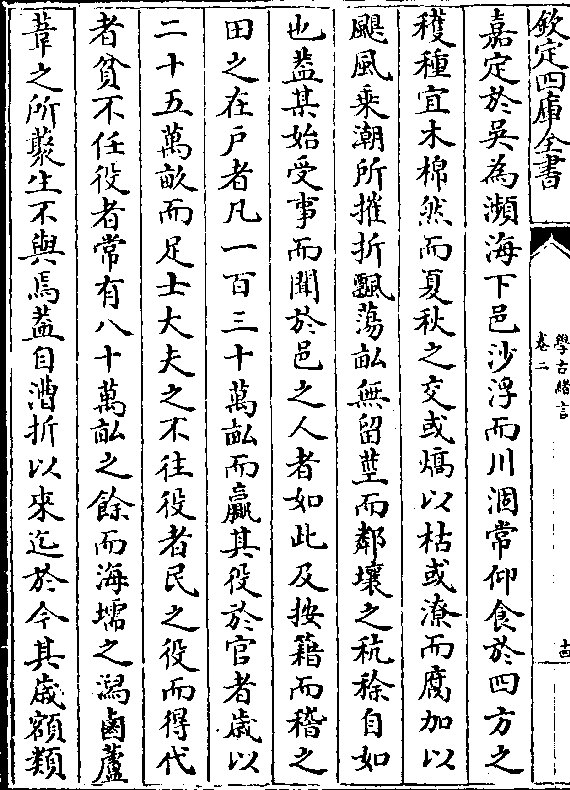 欽定四庫全書
學古緒言
卷二
十四
嘉定於吳為瀕海下邑沙浮而川涸常仰食於四方之
穫種宜木棉然而夏秋之交或熇以枯或潦而腐加以
颶風乘潮所摧折飄蕩畝無留莖而鄰壤之秔稌自如
也葢某始受事而聞於邑之人者如此及按籍而稽之
田之在户者凡一百三十萬畝而贏其役於官者歲以
二十五萬畝而足士大夫之不往役者民之役而得代
者貧不任役者常有八十萬畝之餘而海壖之潟鹵蘆
葦之所藂生不與焉葢自漕折以來迄於今其歲額類